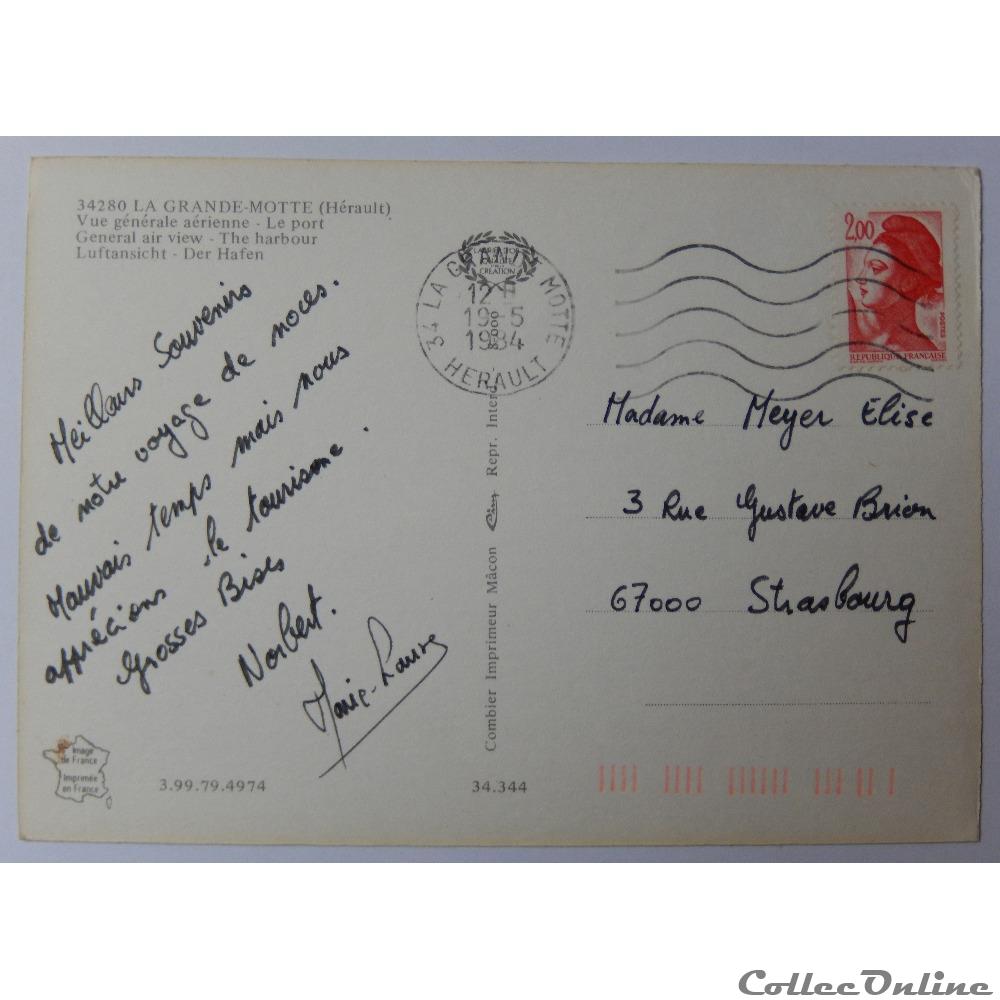 34280 LA GRANDE-MOTTE (Hérault)
Vue générale aérienne - Le port
General air view - The harbour
Luftansicht - Der Hafen
Meilleurs Souvenirs
de notre voyage de noces.
Mauvais temps mais nous
apprécions le tourisme.
Grosses Bises
Norbert.
Marie-Laure
Image
de France
Imprimée
en France
3.99.79.4974
34.344
Combier Imprimeur Mâcon Cim Repr. Interd
34 LA GRANDE MOTTE
CREATION
12 H
19-5
1984
HERAULT
2,00
POSTES
REPUBLIQUE FRANÇAISE
Madame Meyer Elise
3 Rue Gustave Brion
67000 Strasbourg
CollecOnline